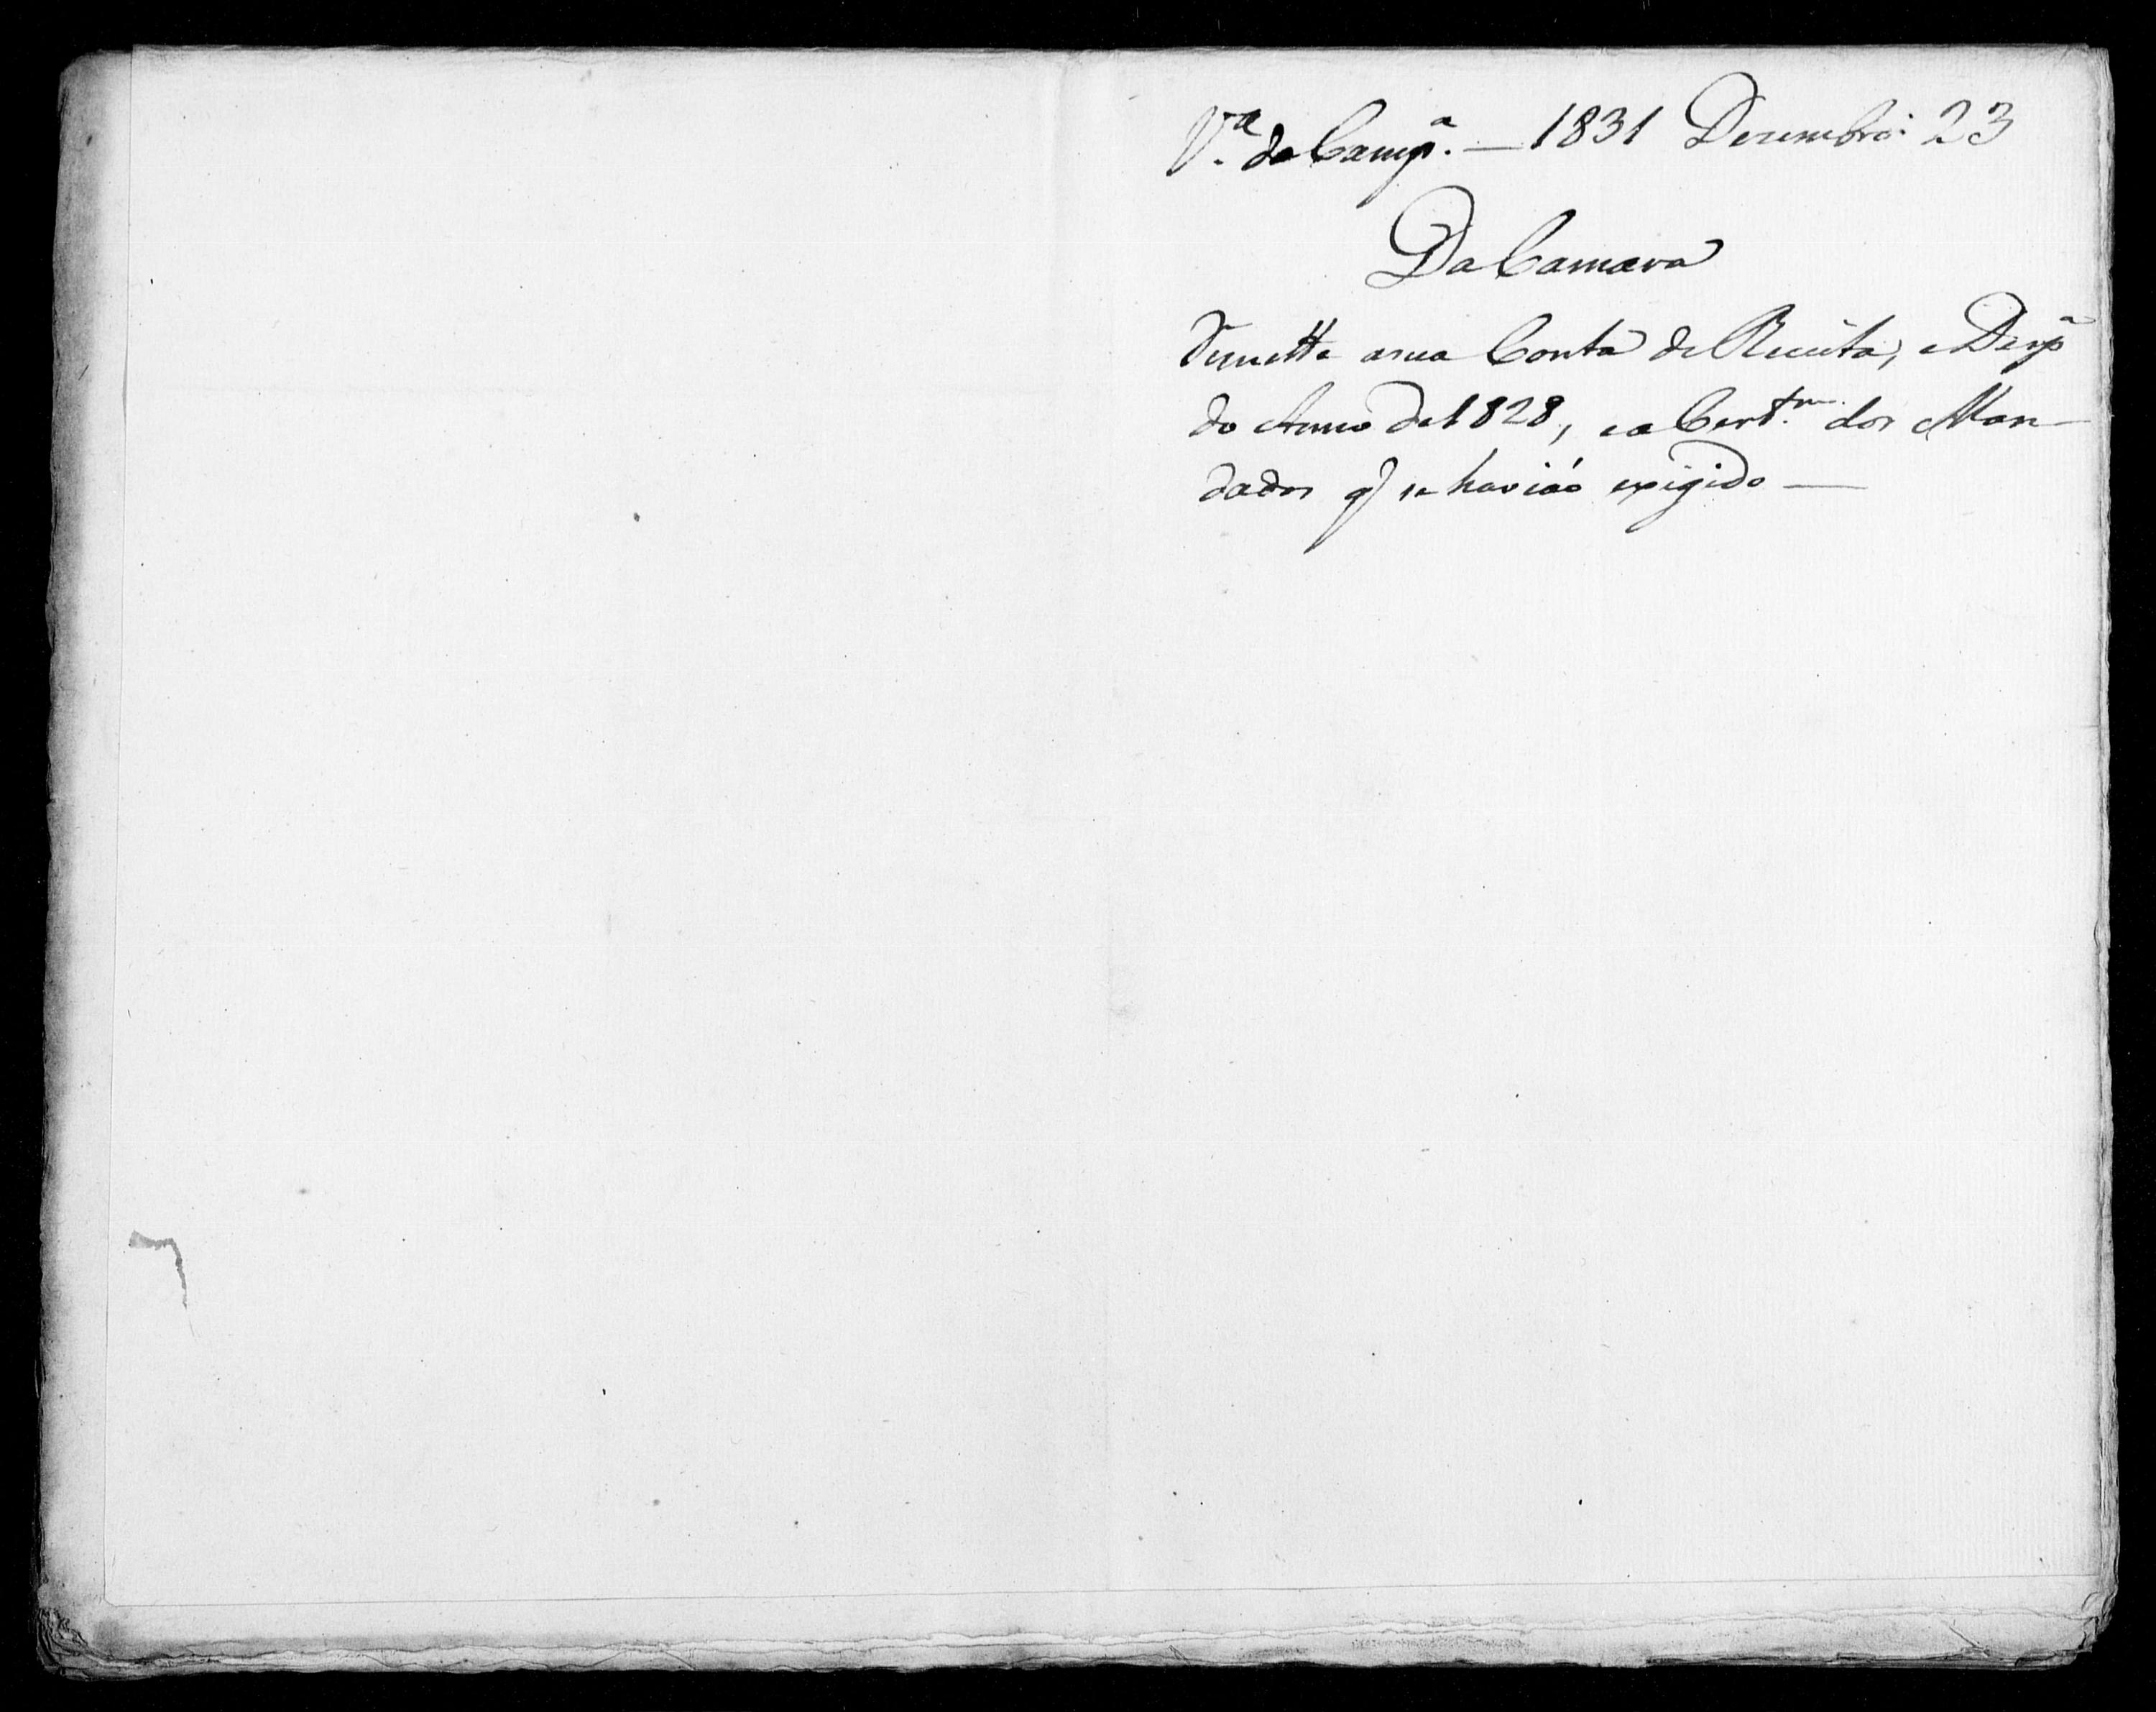 V.ª da Camp.ª — 1831 Dezembro 23
Da Camara
Remette a sua Conta de Receita, e Desp.ª
do Anno de 1828, e a Cert.am dos Man-
dados q̃ se havião exigido —